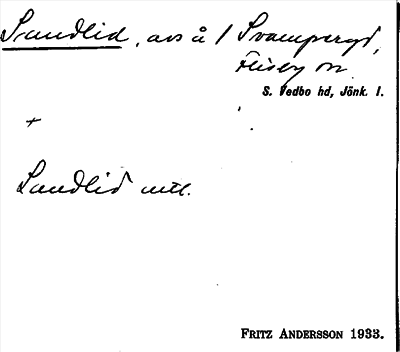 Sandlid, avs å 1 Svamperyd,
Flisby sn
S. Vedbo hd, Jönk. l.
+
Sandlid mtl.
FRITZ ANDERSSON 1933.